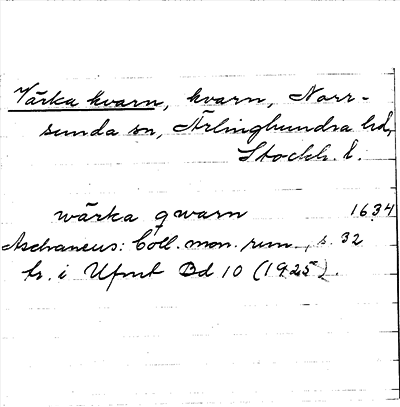 Värka kvarn, kvarn, Norr-
sunda sn, Ärlinghundra hd,
Stockh. l.
wärka qwarn 1634
Aschaneus: Coll. mon. run., s. 32
tr. i Ufmt Bd 10 (1925).